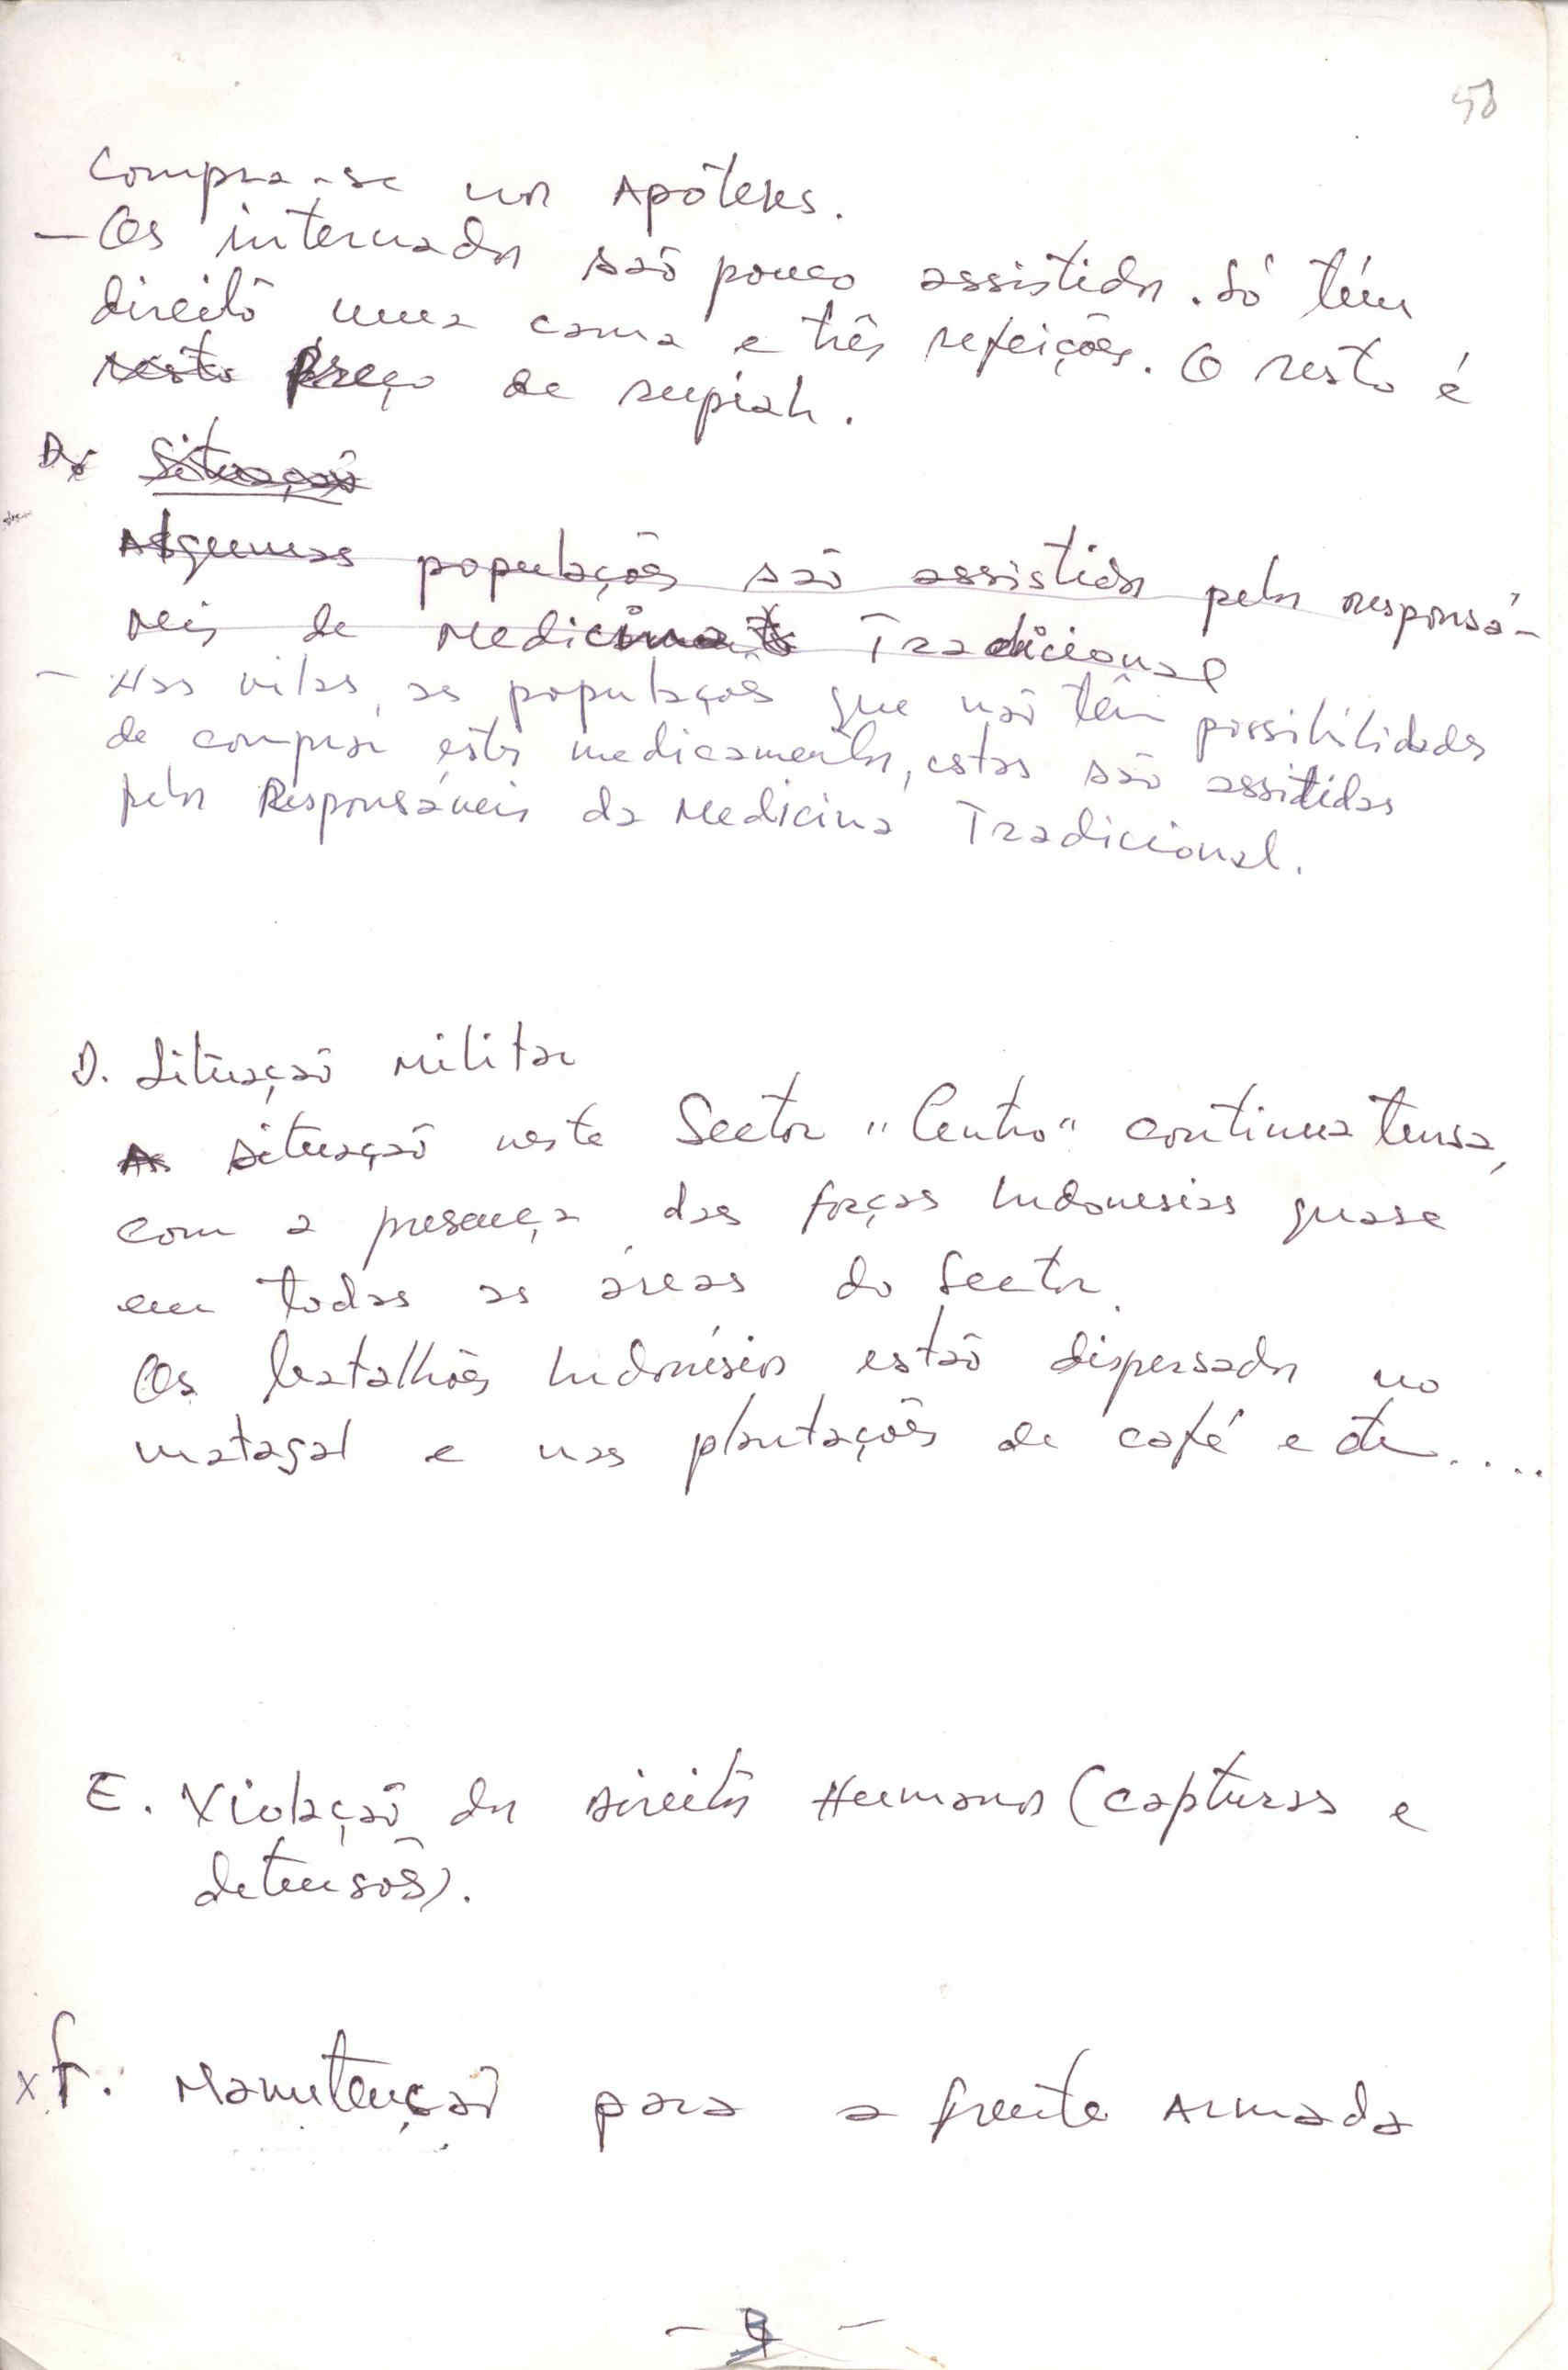 58
Compra-se nos Apóteks.
– Os internados são pouco assistidos. Só têm
direito uma cama e três refeições. O resto é
resto Preço de rupiah.
D. Situação
Algumas populações são assistidos pelos responsá-
veis de Medicina Tradicional
– Nas vilas, as populações que não têm possibilidades
de comprar estes medicamentos, estas são assistidas
pelos Responsáveis da Medicina Tradicional.
D. Situação Militar
A situação neste Sector "Centro" continua tensa,
com a presença das forças Indonesias quase
em todas as áreas do Sector.
Os batalhões Indonésios estão dispersados no
matagal e nas plantações de café e etc....
E. Violação dos Direitos Humanos (capturas e
detensões).
x F. Manutenção para a frente Armada
– 4 –